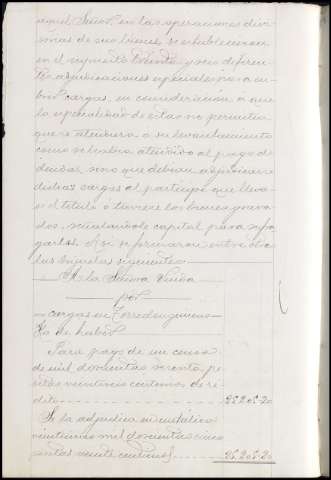 aquel Señor, en las operaciones divi
sorias de sus bienes, se establecieron
en el supuesto treinta y seis diferen
tes adjudicaciones especiales para cu
brir cargas, en consideración á que
la especialidad de estas no permitia
que se atendiera a su levantamiento
como se habia atendido al pago de
deudas, sino que debian adjudicarse
dichas cargas al participe que lleva
se el titulo ó tuviese los bienes grava
dos, señalandole capital para apa
garlas. Asi se formaron entre otras
las hijuelas siguientes
A la Señora Viuda
por
cargas en Torredonjimeno
Ha de haber
Para pago de un censo
de mil doscientas sesenta pe
setas veinticinco centimos de ré
dito
Se la adjudica en metálico
veinticinco mil doscientas cinco
pesetas veinte centimos